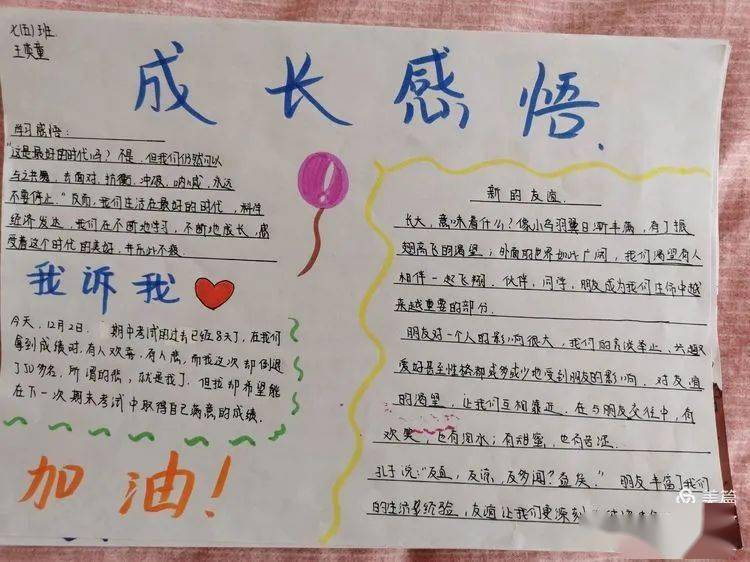 七(五)班
王奕童
成长感悟.
学习感悟:
"这是最好的时代吗? 不是, 但我们仍然可以
与之共舞, 去面对, 抗衡, 冲破, 呐喊, 永远
不要停止." 反而, 我们生活在最好的时代, 科学
经济发达, 我们在不断地学习, 不断地成长, 感
受着这个时代的美好, 并乐此不疲.
我诉我
今天, 12月2日. 期中考试的过去已经8天了, 在我们
拿到成绩时, 有人欢喜, 有人悲, 而我这次却倒退
了10多名, 所谓的悲, 就是我了. 但我却希望能
在下一次期末考试中取得自己满意的成绩.
加油!
新的友谊.
长大, 意味着什么? 像小鸟羽翼日渐丰满, 有了振
翅高飞的渴望; 外面的世界如此广阔, 我们渴望有人
相伴一起飞翔. 伙伴, 同学, 朋友成为我们生命中越
来越重要的部分.
朋友对一个人的影响很大, 我们的言谈举止, 兴趣
爱好甚至性格都或多或少地受到朋友的影响. 对友谊
的渴望, 让我们互相靠近. 在与朋友交往中, 有
欢笑, 也有泪水; 有甜蜜, 也有苦涩.
孔子说: "友直, 友谅, 友多闻, 益矣." 朋友丰富了我们
的生活经验, 友谊让我们更深刻
美篇